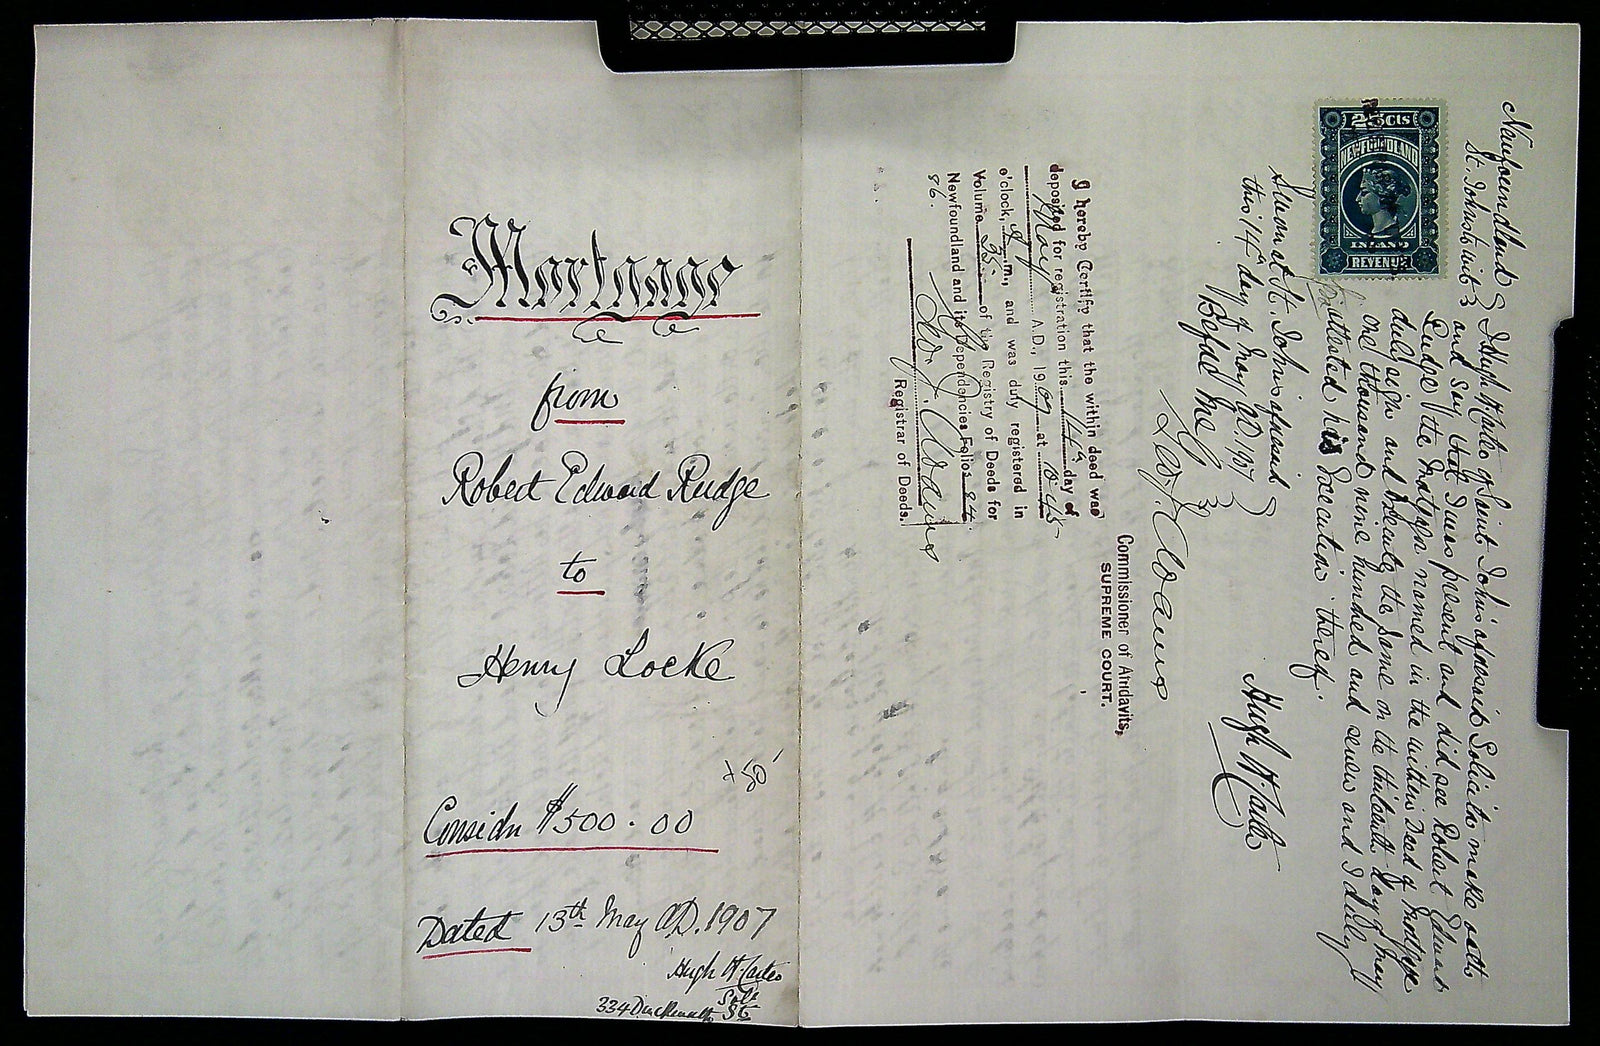 Mortgage
from
Robert Edward Rudge
to
Henry Locke
+50
Considn $500.00
Dated 13th May AD. 1907
Hugh W Carter
Solr
334 Duckworth St
Newfoundland
St. Johns to wit
I Hugh W Carter of Saint John's aforesaid Solicitor make oath
and say that I was present and did see Robert Edward
Rudge the Mortgagor named in the within Deed of Mortgage
duly sign and execute the same on the thirteenth day of May
one thousand nine hundred and seven and I duly
attested his Execution thereof.
25 Cts
NEWFOUNDLAND
INLAND
REVENUE
Sworn at St. John's aforesaid
this 14th day of May AD 1907
Before Me
Hugh W. Carter
Geo. J. Adams
Commissioner of Affidavits,
SUPREME COURT.
I hereby Certify that the within deed was
deposited for registration this 14th day of
May A.D., 1907 at 10.45
o'clock, a.m., and was duly registered in
Volume 35 of the Registry of Deeds for
Newfoundland and its Dependencies Folios 84.
86.
Geo. J. Adams
Registrar of Deeds.